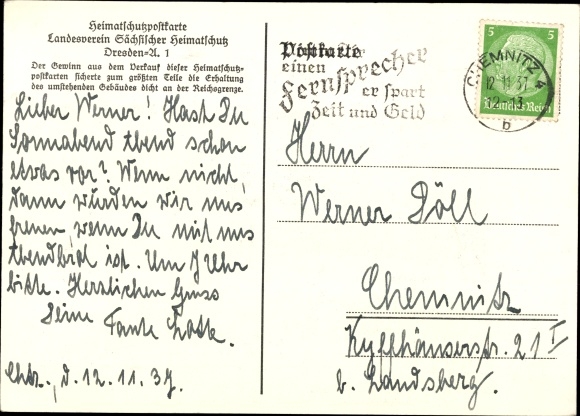 Heimatschutzpostkarte
Landesverein Sächsischer Heimatschutz
Dresden-A. 1
Der Gewinn aus dem Verkauf dieser Heimatschutz-
postkarten sicherte zum größten Teile die Erhaltung
des umstehenden Gebäudes dicht an der Reichsgrenze.
Lieber Werner! Hast Du
Sonnabend Abend schon
etwas vor? Wenn nicht,
dann würden wir uns
freuen, wenn Du mit uns
Abendbrot ißt. Um 7 Uhr
bitte. Herzlichen Gruss
Deine Tante Lotte.
Chtz., d. 12.11.37.
Postkarte
einen
Fernsprecher
er spart
Zeit und Geld
CHEMNITZ
12.11.37
b
5 5
Deutsches Reich
Herrn
Werner Döll
Chemnitz
Kyffhäuserstr. 21 I
b. Landsberg.